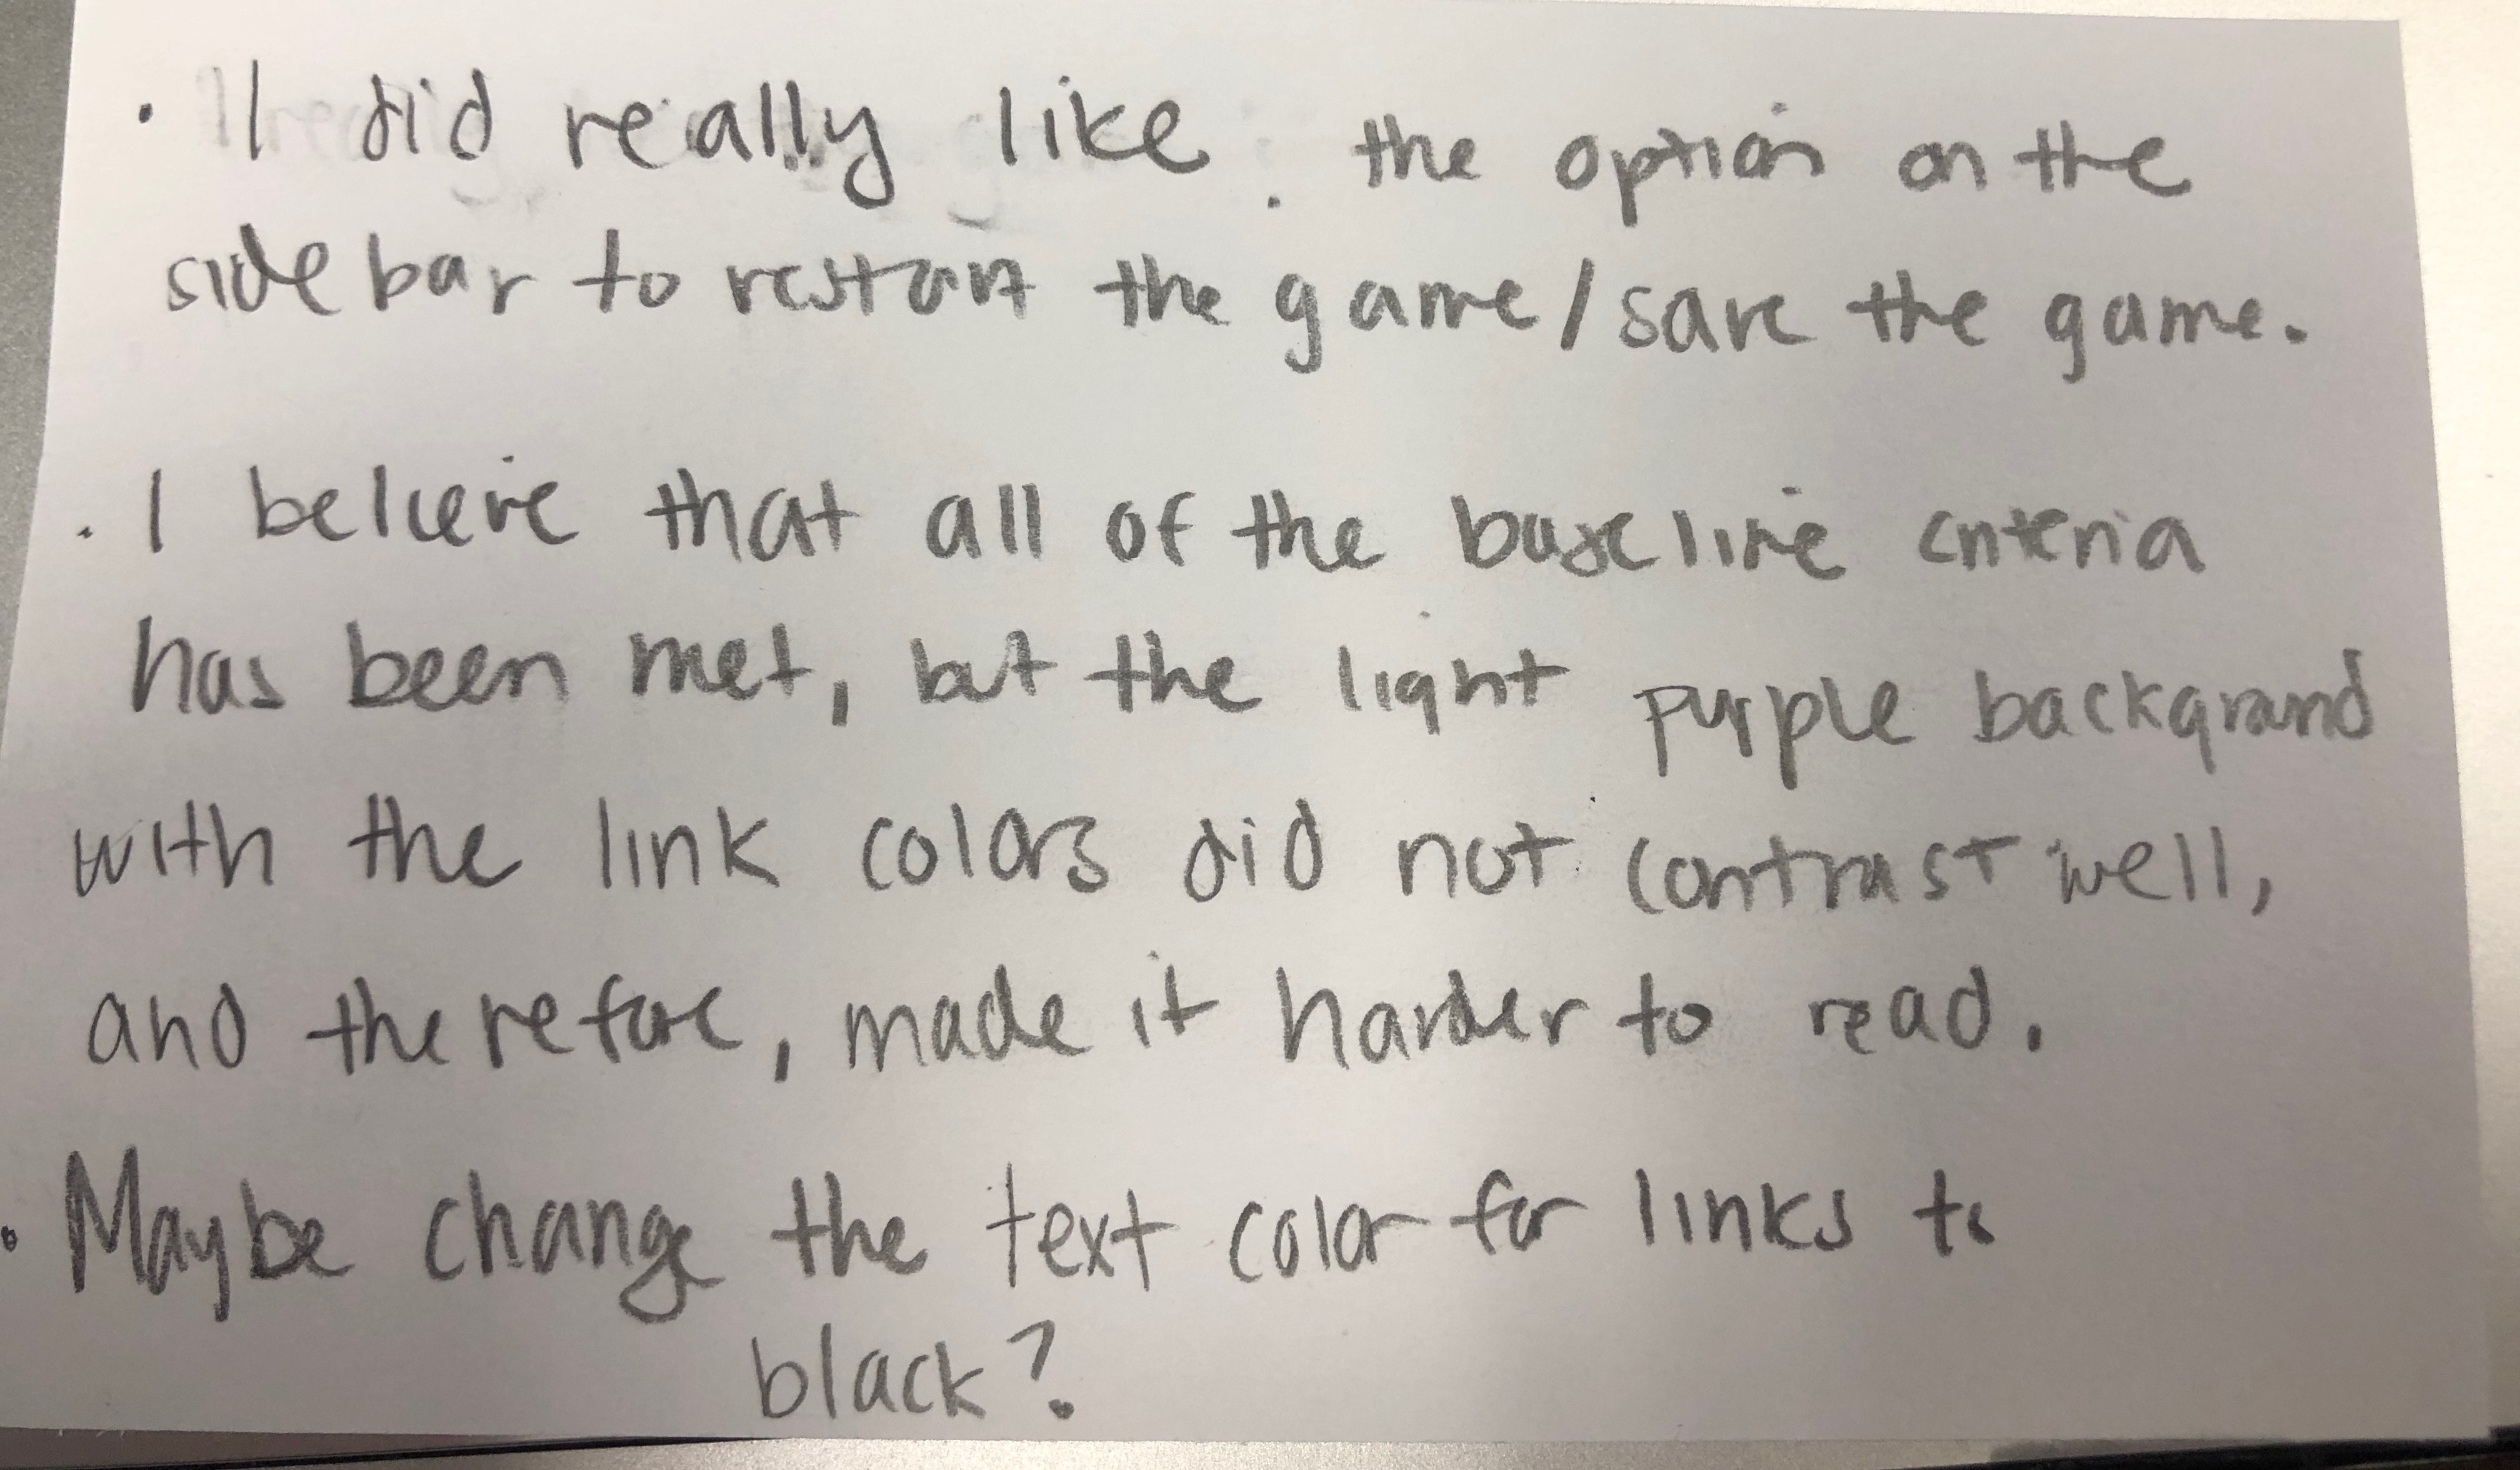 · I did really like the option on the
side bar to restart the game/save the game.
· I believe that all of the baseline criteria
has been met, but the light purple background
with the link colors did not contrast well,
and therefore, made it harder to read.
· Maybe change the text color for links to
black?